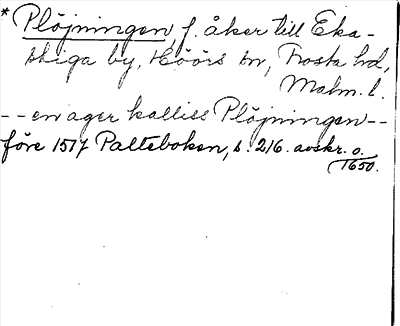 * Plöjningen, f. åker till Eka-
stiga by, Höörs sn, Frosta hd,
Malm. l.
-- en ager kalliss Plöjningen --
före 1517 Palteboken, s. 216. avskr. o.
1650.